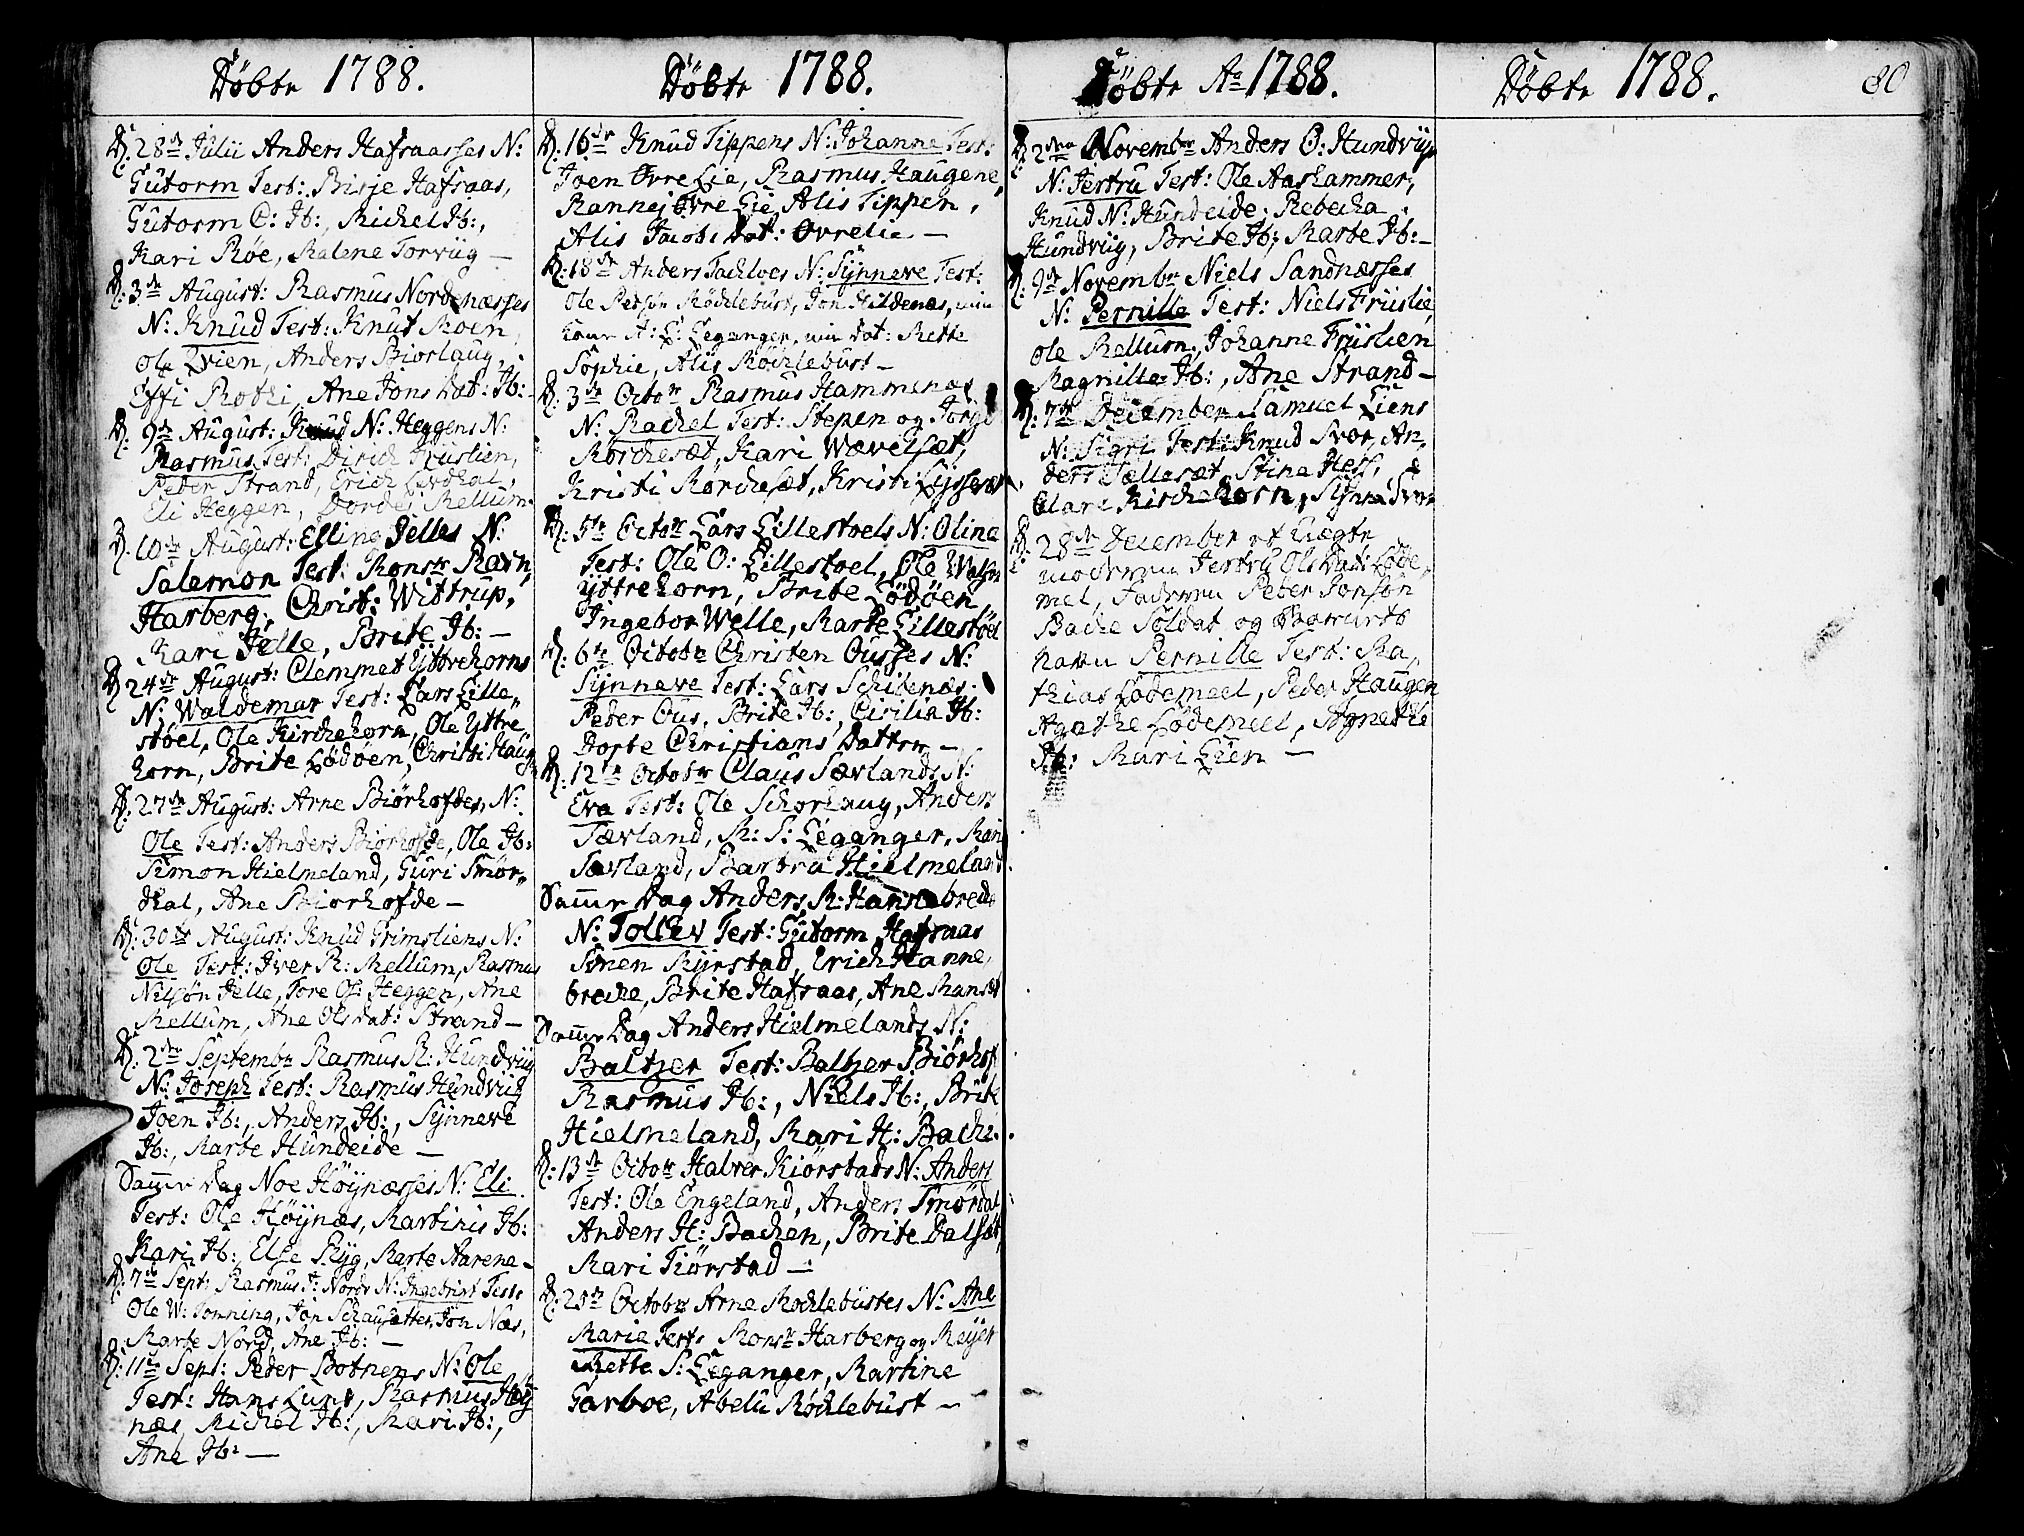 Döbte 1788.
D: 28de Julii Anders Hafsaasses N:
Gutorm Test: Birje Hafsaas,
Gutorm O: Ib:, Michel Ib:,
Kari Röe, Malene Torvüg —
D: 3de August: Rasmus Nordenæsses
N: Knud Test: Knut Moen,
Ole Qvien, Anders Biorlaug,
Effi Rothi, Ane Jons Dat: Ib:
D: 9de August: Knud N: Heggens N:
Rasmus Test: Dirich Friislien,
Peder Strand, Erich
Eli Heggen, Dordei Mellum.
D: 10de August: Elling Jelles N:
Salemon Test: Monsr Ravn,
Harberg, Christ: Wittrup,
Mari Jelle, Brite Ib: —
D: 24de August: Clemmet Yttrehorns
N: Waldemar Test: Lars Lille,
stöel, Ole Kirchehorn, Ole Yttre
horn, Brite Lödöen, Christi Haug
D: 27de August: Arne Biörhofdes, N:
Ole Test: Anders Biörhofde, Ole Ib:
Simon Hielmeland, Guri Smör,
dhal, Ane Biorhofde —
D: 30te August: Knud Grimsliens N:
Ole Test: Iver R: Mellum, Rasmus
Nilsön Jelle, Tore Ols: Heggen, Ane
Mellum, Ane Olsdat: Strand —
D: 2den Septembr Rasmus R: Hundviig
N: Joseph Test: Rasmus Hundviig
Joen Ib:, Anders Ib:, Synneve
Ib:, Marte Hundeide —
Samme Dag Noe Höynæsses N: Eli
Test: Ole Höynæs, Martinis Ib:
Kari Ib: Else Ryg, Marte Aarene —
D: 7de Sept: Rasmus I: Nords N: Ingebrigt Test:
Ole W: Tonning, Jon Jon Næs,
Marte Nord, Ane Ib: —
D: 11te Sept: Peder Botnens N: Ole
Test: Hans Lund, Rasmus Höy
næs, Michel Ib:, Mari Ib:,
Ane Ib: —
Döbte 1788.
D: 16de Knud Tippens N: Johanne Test:
Joen Øvre Lie, Rasmus Haugene,
Rannei Øvre Lie Alis Tippen,
Alis Jacobs Dat: Øvrelie —
D: 18de Anders Tachloes N: Synneve Test:
Ole Pedsön Röchlebust, Jon Hildenes, min
Kone A: L: Leganger, min Dat: Mette
Sophie, Alis Möchlebust —
D: 3de Octobr Rasmus Hammenæs
N: Rachel Test: Stepen og Torgd
Mörchesæt, Kari Wævelsæt,
Kristi Mörchesæt, Kristi Lysse
D: 5te Octobr Lars Lillestoels N: Olina
Test: Ole O: Lillestoel, Ole
Yttrehorn, Brite Lödöen
Ingebor Welle, Marte Lillestöel
D: 6te Octobr Christen Ousses N:
Synneve Test: Lars Schibenæs,
Peder Ous, Brite Ib:, Cicilia Ib:
Dorte Christians Datter —
D: 12te Octobr Claus Sævlands N:
Eva Test: Ole Schorhaug, Anders
Sævland, M: S: Leganger, Mari
Sævland, Bartru Hielmeland.
Samme Dag Anders R: Hannebreche
N: Tollev Test: Gutorm Hafsaas
Simen Myrstad, Erich Hanne,
breche, Brite Hafsaas, Ane
Samme Dag Anders Hielmelands N:
Baltzer Test: Baltzer Biörhof
Rasmus Ib:, Niels Ib:, Brite
Hielmeland, Mari H: Bache.
D: 13de Octobr Halver Kiörstads N: Anders
Test: Ole Engeland, Anders Smördal
Anders H: Bachen, Brite Dalsæt,
Mari Kiörstad —
D: Octobr Arne Mochlebustes N: Ane
Marie Test: Monsr Harberg og Meyer
Mette S: Leganger, Martine
Garboe, Abelu Möchlebust —
Döbte Ao 1788.
D: 2den Novembr Anders O: Hundviigs
N: Jertru Test: Ole Aashammer,
Knud N: Hundeide, Rebecha
Hundviig, Brite Ib; Marte Ib: —
D: 9de Novembr Niels Sandnæsses
N: Pernille Test: Niels Friislie,
Ole Mellum, Johanne Friislien
Magnille Ib:, Ane Strand —
D: 7de December Samuel Liens
N: Sigri Test: Knud Svor, An,
ders Tællesæt, Stina Hess,
Clare Kirchehorn, Synni Svor
D: 28de December et Uægte
moderen Jertru Olsdat: Löde,
mel, Faderen Peder Jonsön
Bache Soldat og
Navn Pernille Test: Ma,
thias Lödemeel, Peder Haugen
Agathe Lödemeel, Agnethe
Ib: Mari Lien —
Döbte 1788.
80